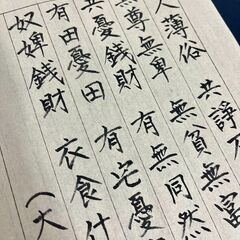 人薄俗 共諍不
無尊無卑 無貧無富
共憂錢財 有無同然
有田憂田 有宅憂
奴婢錢財 衣食什
（大